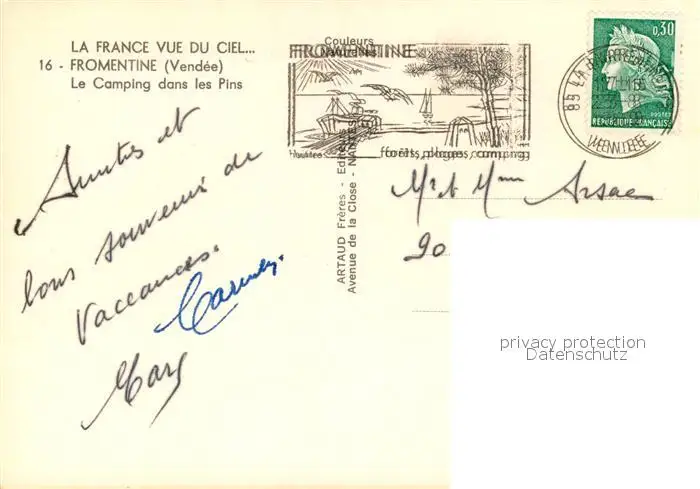 LA FRANCE VUE DU CIEL...
16 - FROMENTINE (Vendée)
Le Camping dans les Pins
Amitiés et
bons souvenirs de
Vaccances.
Couleurs
Naturelles
ARTAUD Frères - Editeurs
Avenue de la Close - NANTES
FROMENTINE
forêts, plages, camping
0,30
POSTES
REPUBLIQUE FRANÇAISE
85 LA
Mr et Mme Arsac
90
privacy protection
Datenschutz